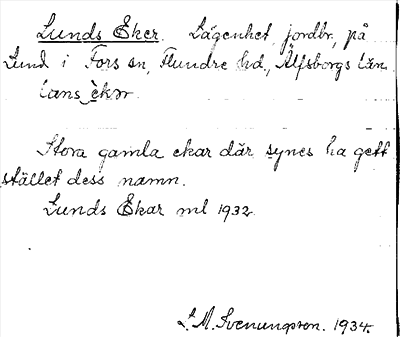 Lunds Eker. Lägenhet, jordbr, på
Lund i Fors sn, Flundre hd., Älfsborgs län
lans ekər
Stora gamla ekar där synes ha gett
stället dess namn.
Lunds Ekar ml 1932
L. M. Svenungsson. 1934.